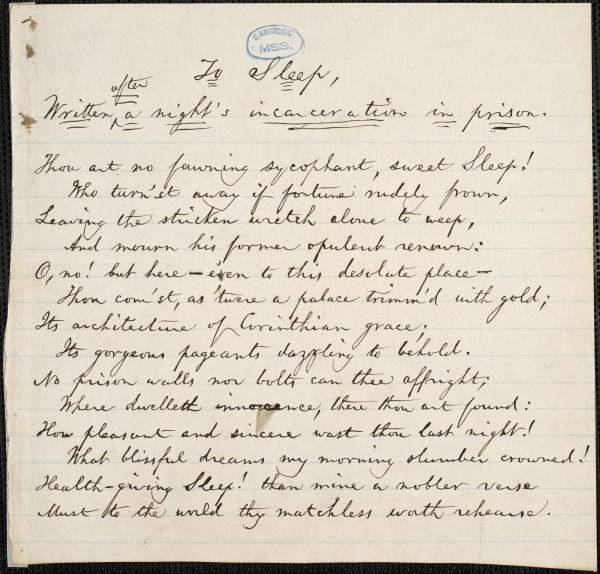 GARRISON
MSS.
To Sleep,
Written, after a night's incarceration in prison.
Thou art no fawning sycophant, sweet Sleep!
Who turn'st away if fortune rudely frown,
Leaving the stricken wretch alone to weep,
And mourn his former opulent renown:
O, no! but here – even to this desolate place –
Thou com'st, as 'twere a palace trimm'd with gold;
Its architecture of Corinthian grace;
Its gorgeous pageants dazzling to behold.
No prison walls nor bolts can thee affright;
Where dwelleth innocence, there thou art found:
How pleasant and sincere wast thou last night!
What blissful dreams my morning slumber crowned!
Health-giving Sleep! than mine a nobler verse
Must to the world thy matchless worth rehearse.